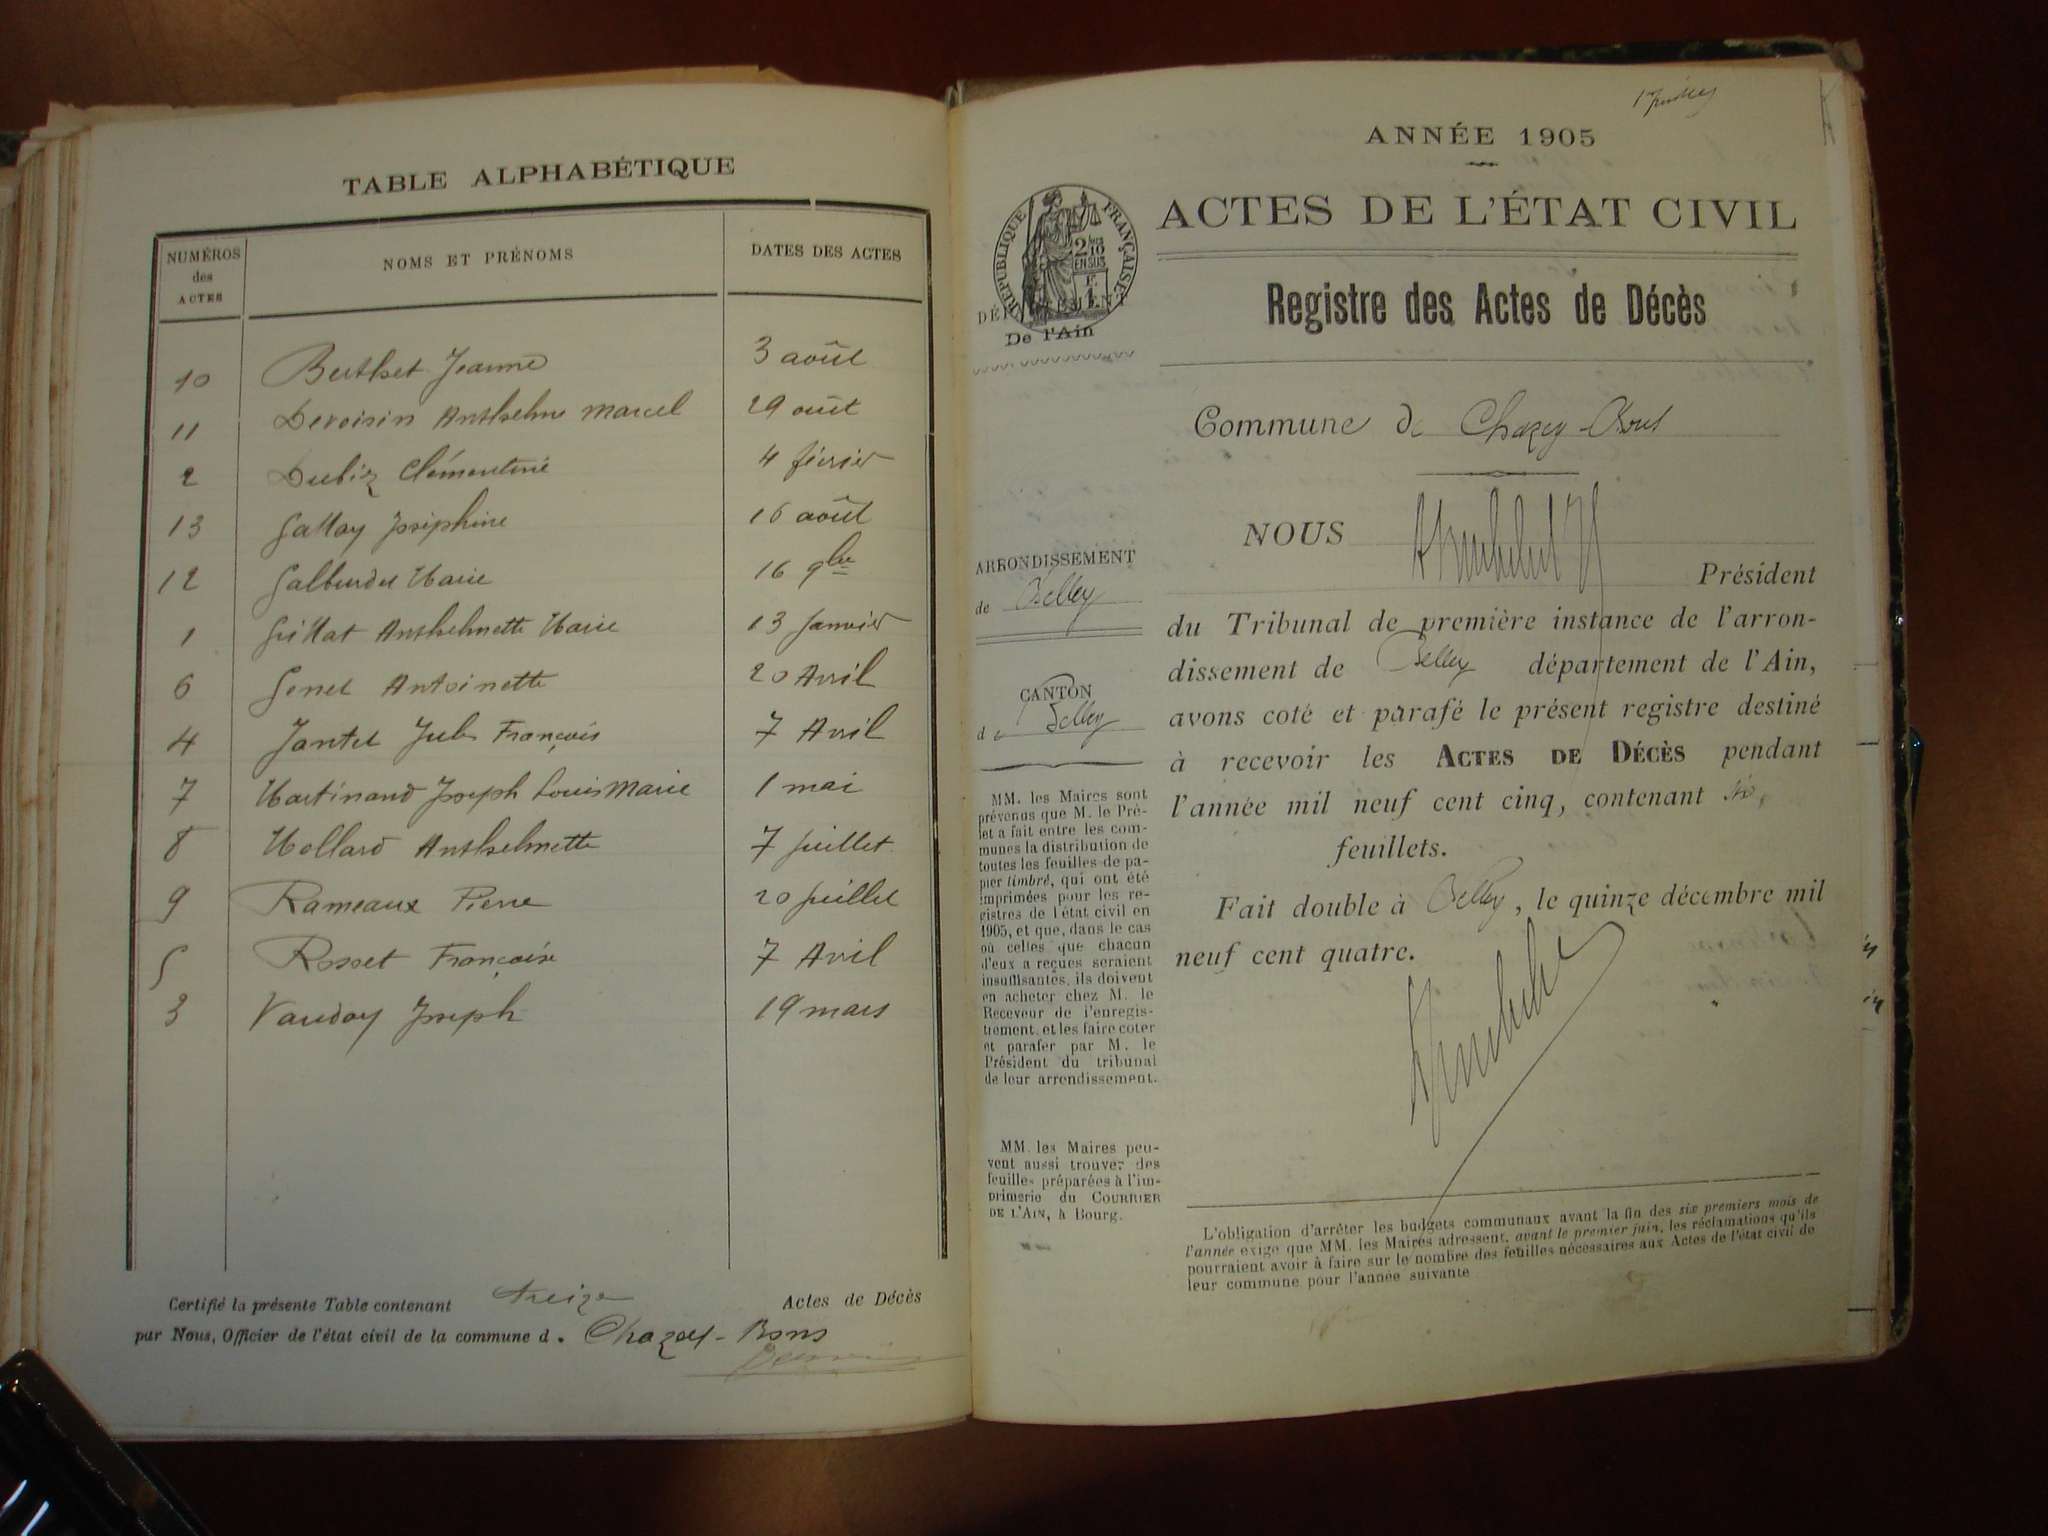 TABLE ALPHABÉTIQUE
NUMÉROS des ACTES NOMS ET PRÉNOMS DATES DES ACTES
10 Berthet Jeanne 3 août
11 Devoisin Anthelme Marcel 29 août
2 Dubiz Clémentine 4 février
13 Gallay Joséphine 16 août
12 Marie 16 9bre
1 Grillat Anthelmette Marie 13 Janvier
6 Genet Antoinette 20 Avril
4 Jantet François 7 Avril
7 Martinand Joseph Louis Marie 1 mai
8 Mollard Anthelmette 7 Juillet
9 Rameaux Pierre 20 Juillet
5 Rosset Françoise 7 Avril
3 Vauday Joseph 19 mars
Certifié la présente Table contenant treize Actes de Décès
par Nous, Officier de l'état civil de la commune d. Chazey-Bons
ANNÉE 1905
ACTES DE L'ÉTAT CIVIL
RÉPUBLIQUE FRANÇAISE
2/10 EN SUS
DÉPARTEMENT
De l'Ain
Registre des Actes de Décès
Commune de Chazey-Bons
ARRONDISSEMENT
de Belley
CANTON
de Belley
MM. les Maires sont
prévenus que M. le Pré-
fet a fait entre les com-
munes la distribution de
toutes les feuilles de pa-
pier timbré, qui ont été
imprimées pour les re-
gistres de l'état civil en
1905, et que, dans le cas
où celles que chacun
d'eux a reçues seraient
insuffisantes, ils doivent
en acheter chez M. le
Receveur de l'enregis-
trement, et les faire coter
et parafer par M. le
Président du tribunal
de leur arrondissement.
MM. les Maires peu-
vent aussi trouver des
feuilles préparées à l'im-
primerie du COURRIER
DE L'AIN, à Bourg.
NOUS
Président
du Tribunal de première instance de l'arron-
dissement de Belley département de l'Ain,
avons coté et parafé le présent registre destiné
à recevoir les ACTES DE DÉCÈS pendant
l'année mil neuf cent cinq, contenant six,
feuillets.
Fait double à Belley, le quinze décembre mil
neuf cent quatre.
L'obligation d'arrêter les budgets communaux avant la fin des six premiers mois de
l'année exige que MM. les Maires adressent, avant le premier juin, les réclamations qu'ils
pourraient avoir à faire sur le nombre des feuilles nécessaires aux Actes de l'état civil de
leur commune pour l'année suivante